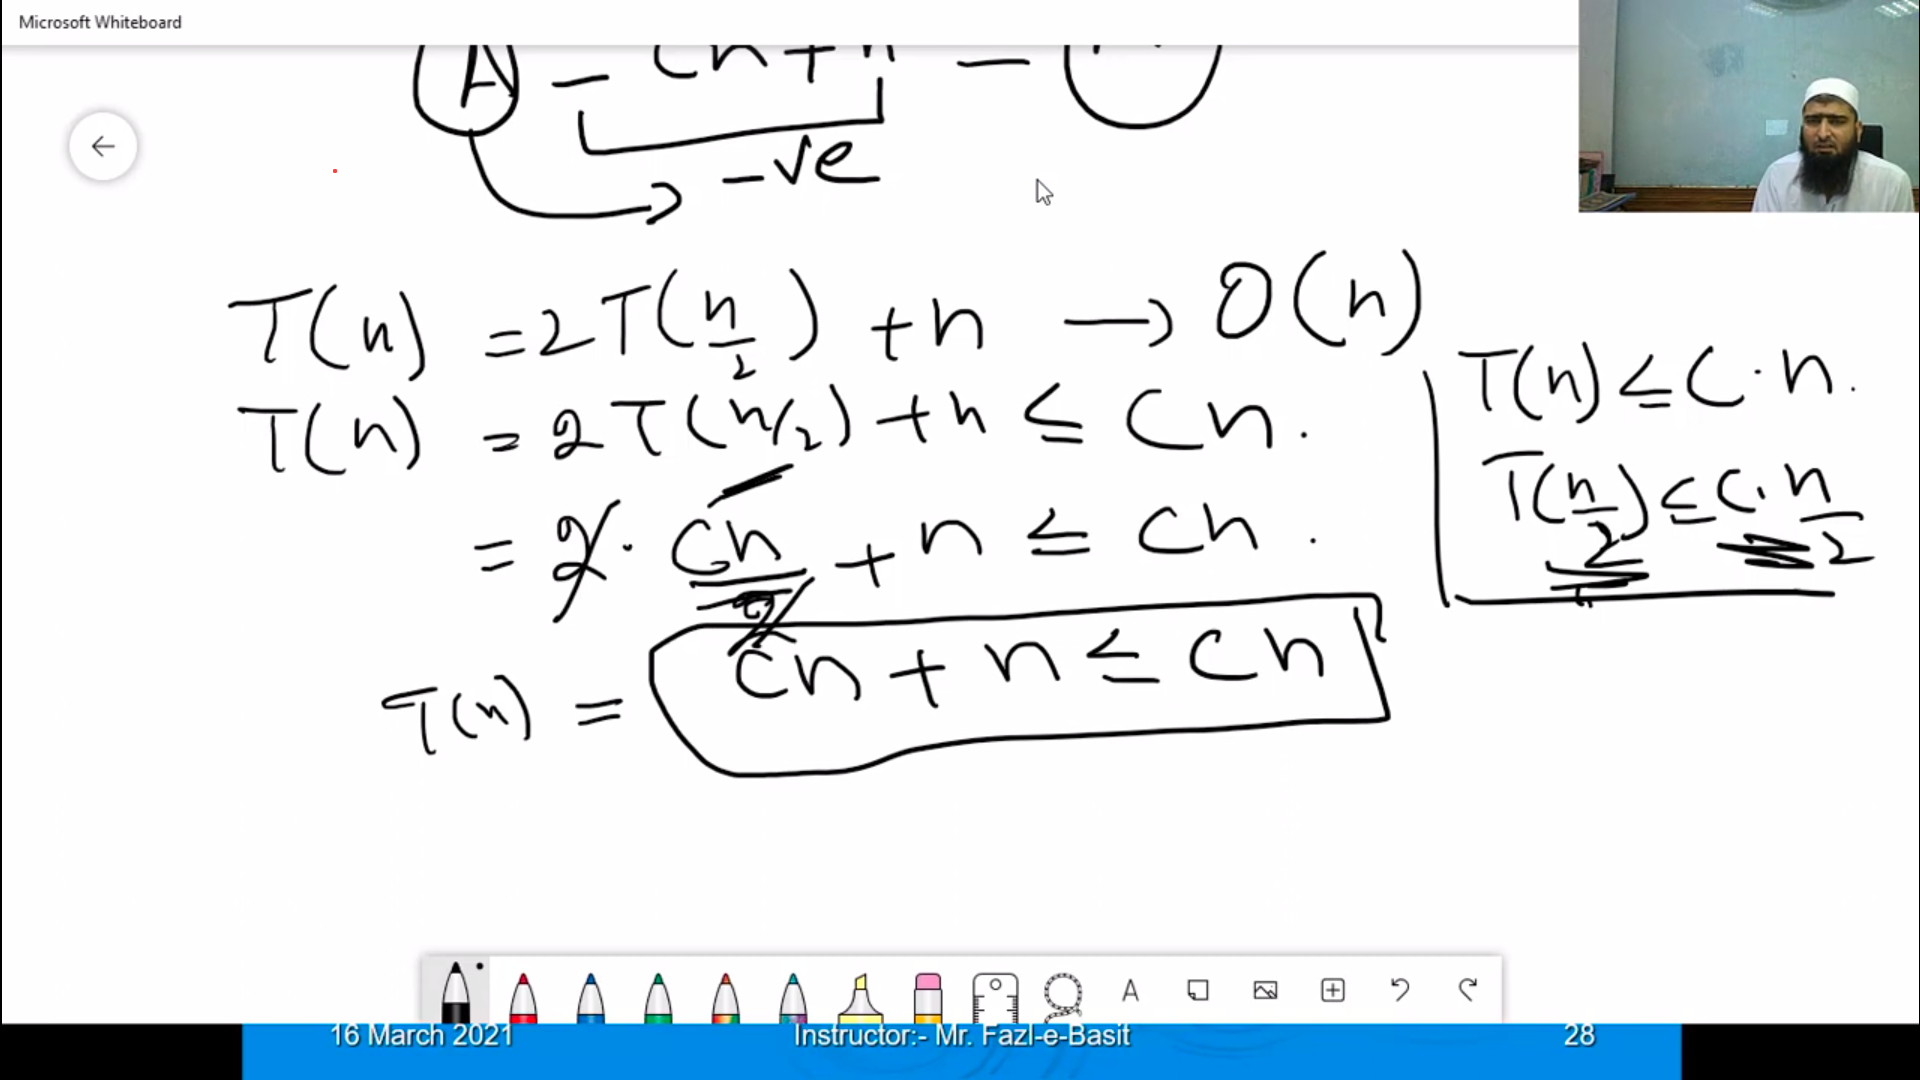 Microsoft Whiteboard
A - cn + n -
-ve
T(n) = 2T(n/2) + n → O(n)
T(n) = 2T(n/2) + n ≤ cn.
= 2 · cn/2 + n ≤ cn.
T(n) = cn + n ≤ cn
T(n) ≤ c·n.
T(n/2) ≤ c·n/2
A
16 March 2021
Instructor:- Mr. Fazl-e-Basit
28